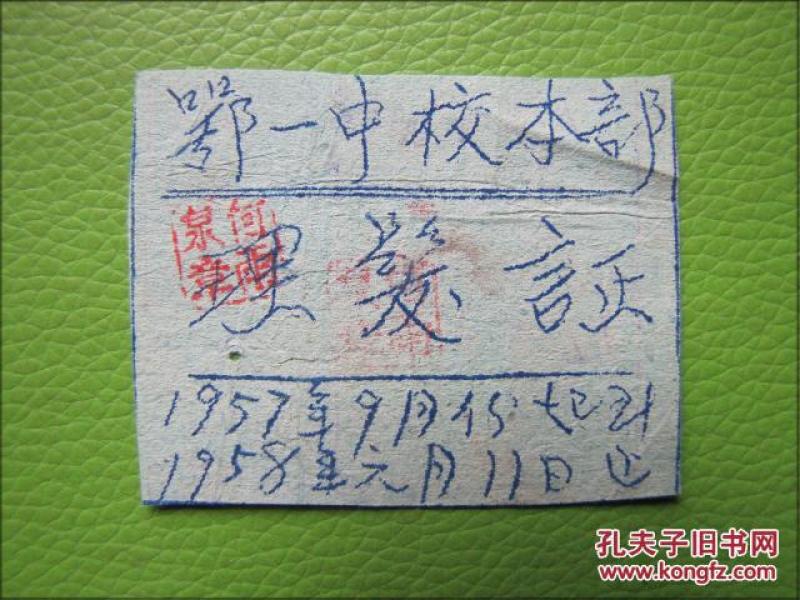 鄂一中校本部
理髮証
1957年9月份起到
1958年元月11日止
孔夫子旧书网
www.kongfz.com